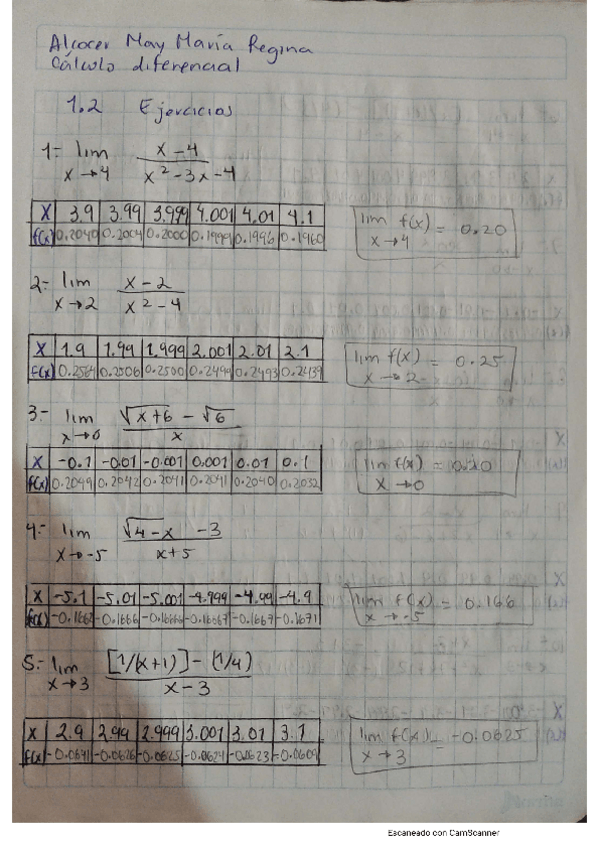 Alcocer May María Regina
Cálculo diferencial
1.2 Ejercicios
1.- lim x→4 (x-4)/(x²-3x-4)
X 3.9 3.99 3.999 4.001 4.01 4.1
f(x) 0.2040 0.2004 0.2000 0.1999 0.1996 0.1960
lim f(x) = 0.20 x→4
2.- lim x→2 (x-2)/(x²-4)
X 1.9 1.99 1.999 2.001 2.01 2.1
f(x) 0.2564 0.2506 0.2500 0.2499 0.2493 0.2439
lim f(x) = 0.25 x→2
3.- lim x→0 (√x+6 - √6)/x
X -0.1 -0.01 -0.001 0.001 0.01 0.1
f(x) 0.2049 0.2042 0.2041 0.2041 0.2040 0.2032
lim f(x) = 0.20 x→0
4.- lim x→-5 (√4-x -3)/(x+5)
X -5.1 -5.01 -5.001 -4.999 -4.99 -4.9
f(x) -0.1666 -0.16666 -0.16667 -0.1667 -0.1671
lim f(x) = 0.166 x→-5
5.- lim x→3 ([1/(x+1)]-(1/4))/(x-3)
X 2.9 2.99 2.999 3.001 3.01 3.1
f(x) -0.0641 -0.0626 -0.0625 -0.0624 -0.0623 -0.0609
lim f(x) = -0.0625 x→3
Escaneado con CamScanner